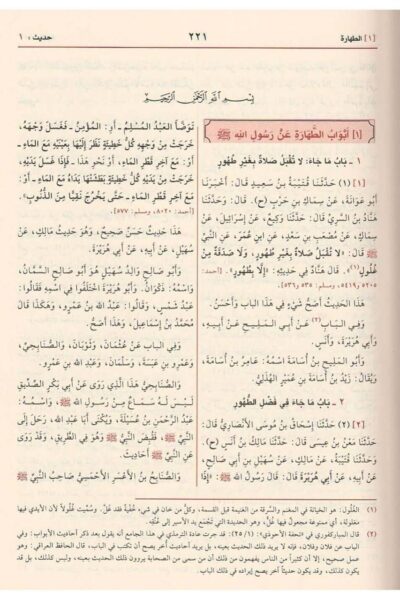 [١] الطهارة
٢٢١
حديث: ١
بِسْمِ اللَّهِ الرَّحْمَنِ الرَّحِيمِ
[١] أَبْوَابُ الطَّهَارَةِ عَنْ رَسُولِ اللهِ ﷺ
١ - بَابُ مَا جَاءَ: لَا تُقْبَلُ صَلَاةٌ بِغَيْرِ طُهُورٍ
[١] (١) حَدَّثَنَا قُتَيْبَةُ بْنُ سَعِيدٍ قَالَ: أَخْبَرَنَا
أَبُو عَوَانَةَ، عَنْ سِمَاكِ بْنِ حَرْبٍ (ح). قَالَ: وَحَدَّثَنَا
هَنَّادُ بْنُ السَّرِيِّ قَالَ: حَدَّثَنَا وَكِيعٌ، عَنْ إِسْرَائِيلَ، عَنْ
سِمَاكٍ، عَنْ مُصْعَبِ بْنِ سَعْدٍ، عَنِ ابْنِ عُمَرَ، عَنِ النَّبِيِّ
ﷺ قَالَ: «لَا تُقْبَلُ صَلَاةٌ بِغَيْرِ طُهُورٍ، وَلَا صَدَقَةٌ مِنْ
غُلُولٍ»(١). قَالَ هَنَّادٌ فِي حَدِيثِهِ: «إِلَّا بِطُهُورٍ». [أحمد:
٥٢٠٥ و٥٤١٩، ومسلم: ٥٣٥ و٥٣٦].
هَذَا الحَدِيثُ أَصَحُّ شَيْءٍ فِي هَذَا البَابِ وَأَحْسَنُ.
وَفِي البَابِ(٢) عَنْ أَبِي المَلِيحِ عَنْ أَبِيهِ،
وَأَبِي هُرَيْرَةَ، وَأَنَسٍ.
وَأَبُو المَلِيحِ بْنُ أُسَامَةَ اسْمُهُ: عَامِرُ بْنُ أُسَامَةَ،
وَيُقَالُ: زَيْدُ بْنُ أُسَامَةَ بْنِ عُمَيْرٍ الهُذَلِيُّ.
٢ - بَابُ مَا جَاءَ فِي فَضْلِ الطُّهُورِ
[٢] (٢) حَدَّثَنَا إِسْحَاقُ بْنُ مُوسَى الأَنْصَارِيُّ قَالَ:
حَدَّثَنَا مَعْنُ بْنُ عِيسَى قَالَ: حَدَّثَنَا مَالِكُ بْنُ أَنَسٍ (ح).
وَحَدَّثَنَا قُتَيْبَةُ، عَنْ مَالِكٍ، عَنْ سُهَيْلِ بْنِ أَبِي صَالِحٍ، عَنْ
أَبِيهِ، عَنْ أَبِي هُرَيْرَةَ قَالَ: قَالَ رَسُولُ اللهِ ﷺ: «إِذَا
تَوَضَّأَ العَبْدُ المُسْلِمُ - أَوِ: المُؤْمِنُ - فَغَسَلَ وَجْهَهُ،
خَرَجَتْ مِنْ وَجْهِهِ كُلُّ خَطِيئَةٍ نَظَرَ إِلَيْهَا بِعَيْنَيْهِ مَعَ المَاءِ -
أَوْ: مَعَ آخِرِ قَطْرِ المَاءِ، أَوْ نَحْوِ هَذَا - فَإِذَا غَسَلَ يَدَيْهِ،
خَرَجَتْ مِنْ يَدَيْهِ كُلُّ خَطِيئَةٍ بَطَشَتْهَا يَدَاهُ مَعَ المَاءِ - أَوْ:
مَعَ آخِرِ قَطْرِ المَاءِ - حَتَّى يَخْرُجَ نَقِيًّا مِنَ الذُّنُوبِ».
[أحمد: ٨٠٢٠، ومسلم: ٥٧٧].
هَذَا حَدِيثٌ حَسَنٌ صَحِيحٌ، وَهُوَ حَدِيثُ مَالِكٍ، عَنْ
سُهَيْلٍ، عَنْ أَبِيهِ، عَنْ أَبِي هُرَيْرَةَ.
وَأَبُو صَالِحٍ وَالِدُ سُهَيْلٍ هُوَ أَبُو صَالِحٍ السَّمَّانُ،
وَاسْمُهُ: ذَكْوَانُ. وَأَبُو هُرَيْرَةَ اخْتَلَفُوا فِي اسْمِهِ فَقَالُوا:
عَبْدُ شَمْسٍ، وَقَالُوا: عَبْدُ اللهِ بْنُ عَمْرٍو، وَهَكَذَا قَالَ
مُحَمَّدُ بْنُ إِسْمَاعِيلَ، وَهَذَا أَصَحُّ.
وَفِي البَابِ عَنْ عُثْمَانَ، وَثَوْبَانَ، وَالصُّنَابِحِيِّ،
وَعَمْرِو بْنِ عَبَسَةَ، وَسَلْمَانَ، وَعَبْدِ اللهِ بْنِ عَمْرٍو.
وَالصُّنَابِحِيُّ هَذَا الَّذِي رَوَى عَنْ أَبِي بَكْرٍ الصِّدِّيقِ
لَيْسَ لَهُ سَمَاعٌ مِنْ رَسُولِ اللهِ ﷺ، وَاسْمُهُ:
عَبْدُ الرَّحْمَنِ بْنُ عُسَيْلَةَ، وَيُكْنَى أَبَا عَبْدِ اللهِ، رَحَلَ إِلَى
النَّبِيِّ ﷺ، فَقُبِضَ النَّبِيُّ ﷺ وَهُوَ فِي الطَّرِيقِ، وَقَدْ رَوَى
عَنِ النَّبِيِّ ﷺ أَحَادِيثَ.
وَالصُّنَابِحُ بْنُ الأَعْسَرِ الأَحْمَسِيُّ صَاحِبُ النَّبِيِّ ﷺ
(١) الغُلُول: هو الخيانة في المغنم والسرقة من الغنيمة قبل القسمة، وكلُّ من خان في شيءٍ خُفيةً فقد غلَّ. وسُمِّيت غُلولاً لأن الأيدي فيها
مغلولة، أي ممنوعة مجعول فيها غُلٌّ، وهو الحديدة التي تَجمَع يد الأسير إلى عُنُقه.
(٢) قال المباركفوري في «تحفة الأحوذي»: (٢٥/١): قد جرت عادة الترمذي في هذا الجامع أنه يقول بعد ذكر أحاديث الأبواب: وفي
الباب عن فلان وفلان، فإنه لا يريد ذلك الحديث بعينه، بل يريد أحاديث أُخر يصح أن تكتب في الباب، قال الحافظ العراقي: وهو
عمل صحيح، إلا أن كثيراً من الناس يفهمون من ذلك أن من سمى من الصحابة يروون ذلك الحديث بعينه، وليس كذلك، بل قد
يكون كذلك، وقد يكون حديثاً آخر يصح إيراده في ذلك الباب.